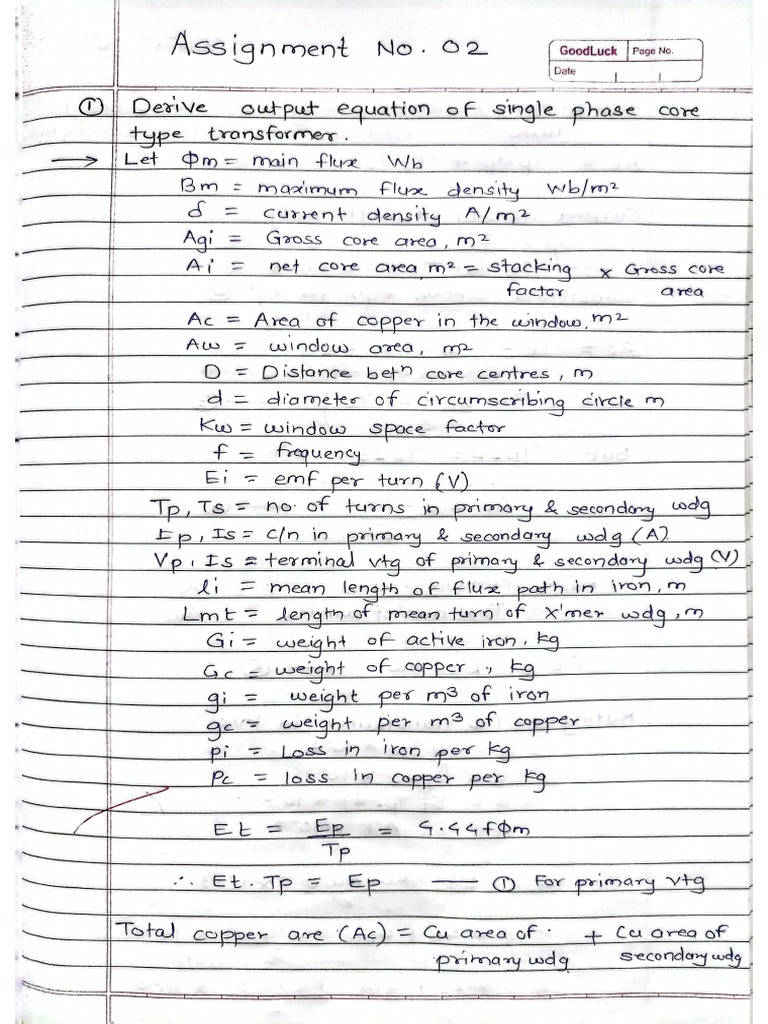 Assignment No. 02
GoodLuck Page No.
Date
① Derive output equation of single phase core
type transformer.
→ Let Φm = main flux Wb
Bm = maximum flux density Wb/m²
δ = current density A/m²
Agi = Gross core area, m²
Ai = net core area m² = stacking × Gross core
factor area
Ac = Area of copper in the window, m²
Aw = window area, m²
D = Distance betⁿ core centres, m
d = diameter of circumscribing circle m
Kw = window space factor
f = frequency
Ei = emf per turn (V)
Tp, Ts = no. of turns in primary & secondary wdg
Ip, Is = c/n in primary & secondary wdg (A)
Vp, Is = terminal vtg of primary & secondary wdg (V)
li = mean length of flux path in iron, m
Lmt = length of mean turn of X'mer wdg, m
Gi = weight of active iron, kg
Gc = weight of copper, kg
gi = weight per m3 of iron
gc = weight per m3 of copper
pi = Loss in iron per kg
Pc = loss in copper per kg
Et = Ep = 4.44fΦm
Tp
∴ Et. Tp = Ep — ① For primary vtg
Total copper are (Ac) = Cu area of + Cu area of
primary wdg secondary wdg